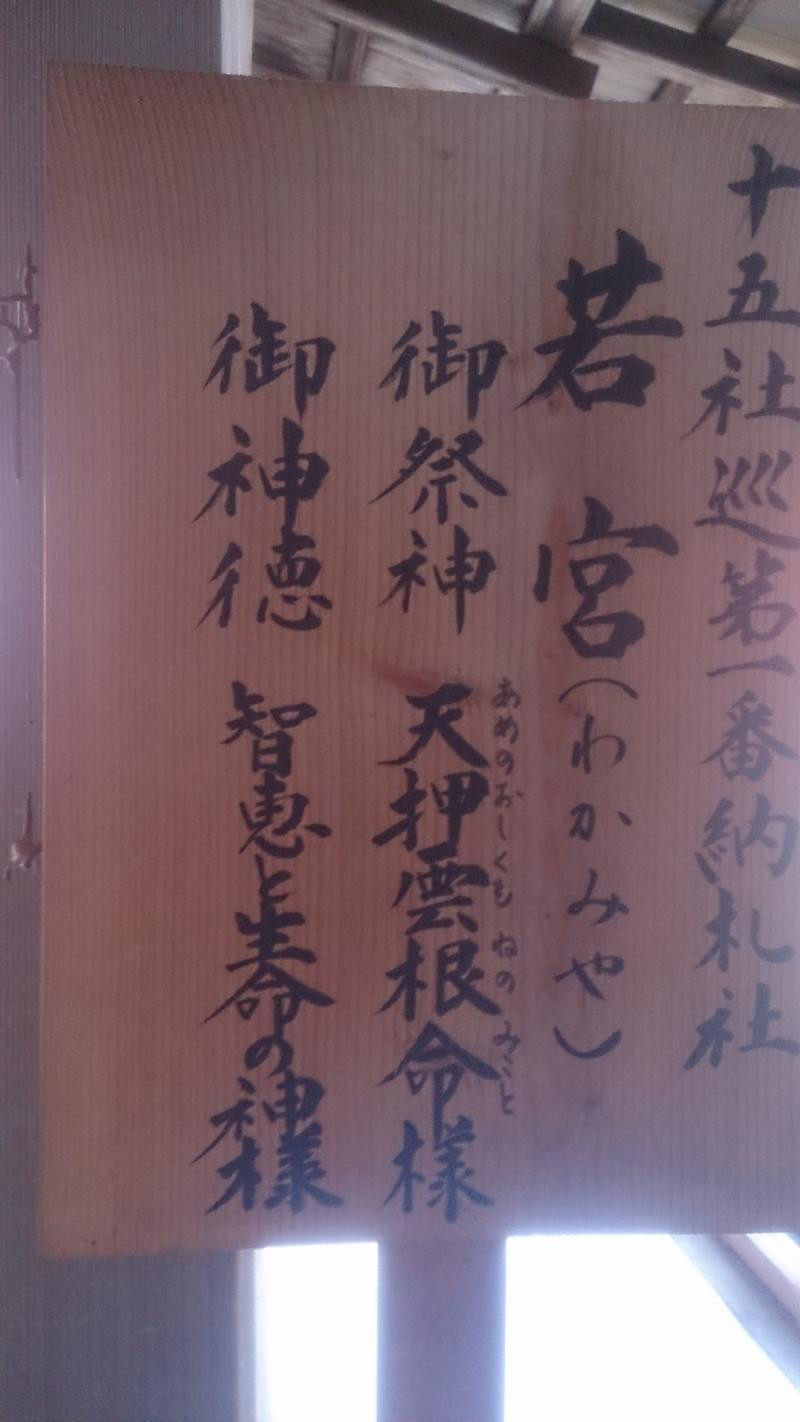 十五社巡第一番納札社
若宮（わかみや）
御祭神 天押雲根命様
あめのおしくも ねの みこと
御神徳 智恵と生命の神様